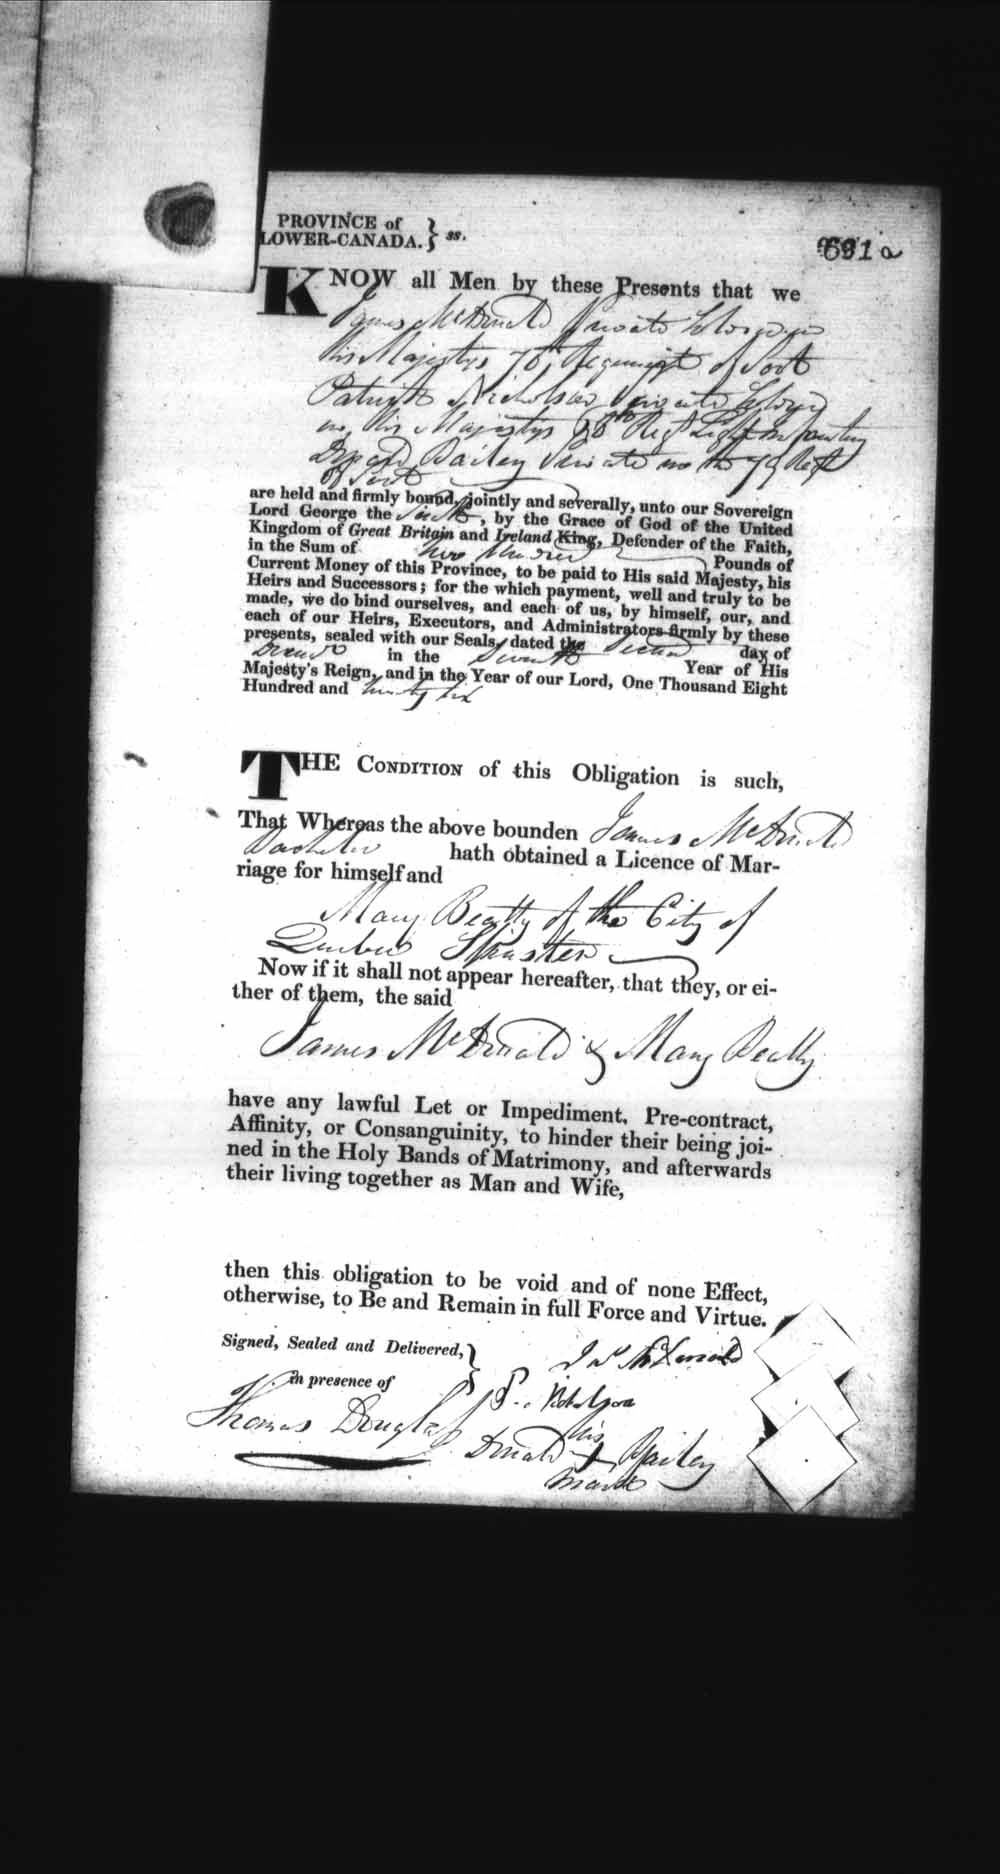 PROVINCE of
LOWER-CANADA. } ss.
631 a
KNOW all Men by these Presents that we
James McDonald Private
His Majestys Regiment of Foot
Patrick Nicholson Private
His Majestys Regt Light Infantry
Bailey Private in the 79 Regt
of Foot
are held and firmly bound, jointly and severally, unto our Sovereign
Lord George the , by the Grace of God of the United
Kingdom of Great Britain and Ireland King, Defender of the Faith,
in the Sum of Two Hundred Pounds of
Current Money of this Province, to be paid to His said Majesty, his
Heirs and Successors; for the which payment, well and truly to be
made, we do bind ourselves, and each of us, by himself, our, and
each of our Heirs, Executors, and Administrators firmly by these
presents, sealed with our Seals, dated the Second day of
in the Seventh Year of His
Majesty's Reign, and in the Year of our Lord, One Thousand Eight
Hundred and
THE CONDITION of this Obligation is such,
That Whereas the above bounden James McDonald
Bachelor hath obtained a Licence of Mar-
riage for himself and
Mary Beatty of the City of
Quebec Spinster
Now if it shall not appear hereafter, that they, or ei-
ther of them, the said
James McDonald & Mary Beatty
have any lawful Let or Impediment, Pre-contract,
Affinity, or Consanguinity, to hinder their being joi-
ned in the Holy Bands of Matrimony, and afterwards
their living together as Man and Wife,
then this obligation to be void and of none Effect,
otherwise, to Be and Remain in full Force and Virtue.
Signed, Sealed and Delivered, }
in presence of
Jas McDonald
P. Nicholson
Thomas Douglas
his
Donald + Bailey
mark